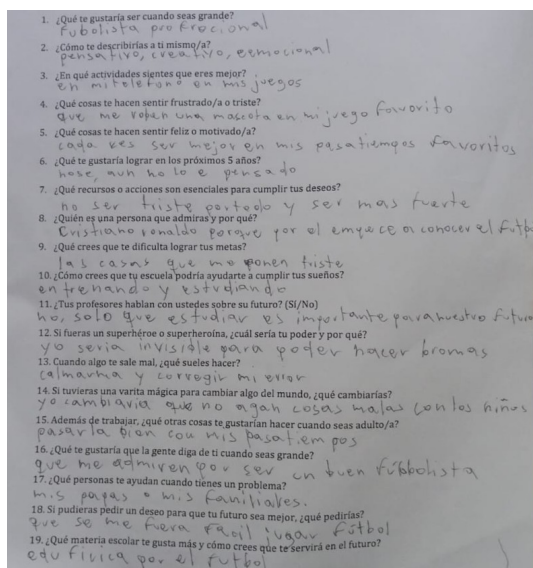 1. ¿Qué te gustaría ser cuando seas grande?
Fubolista profrocional
2. ¿Cómo te describirías a ti mismo/a?
pensativo, creativo, eemocional
3. ¿En qué actividades sientes que eres mejor?
en mi telefono en mis juegos
4. ¿Qué cosas te hacen sentir frustrado/a o triste?
que me roben una mascota en mi juego favorito
5. ¿Qué cosas te hacen sentir feliz o motivado/a?
cada ves ser mejor en mis pasatiempos favoritos
6. ¿Qué te gustaría lograr en los próximos 5 años?
nose, aun no lo e pensado
7. ¿Qué recursos o acciones son esenciales para cumplir tus deseos?
no ser triste por todo y ser mas fuerte
8. ¿Quién es una persona que admiras y por qué?
Cristiano ronaldo porque por el empece a conocer el Futb
9. ¿Qué crees que te dificulta lograr tus metas?
las casas que me ponen triste
10. ¿Cómo crees que tu escuela podría ayudarte a cumplir tus sueños?
entrenando y estudiando
11. ¿Tus profesores hablan con ustedes sobre su futuro? (Sí/No)
no, solo que estudiar es importante para nuestro futuro
12. Si fueras un superhéroe o superheroína, ¿cuál sería tu poder y por qué?
yo seria invisible para poder hacer bromas
13. Cuando algo te sale mal, ¿qué sueles hacer?
calmarma y corregir mi error
14. Si tuvieras una varita mágica para cambiar algo del mundo, ¿qué cambiarías?
yo cambiaria que no agan cosas malas con los niños
15. Además de trabajar, ¿qué otras cosas te gustarían hacer cuando seas adulto/a?
pasarla bien con mis pasatiempos
16. ¿Qué te gustaría que la gente diga de ti cuando seas grande?
que me admiren por ser un buen fubbolista
17. ¿Qué personas te ayudan cuando tienes un problema?
mis papas o mis familiares.
18. Si pudieras pedir un deseo para que tu futuro sea mejor, ¿qué pedirías?
que se me fuera facil jugar fútbol
19. ¿Qué materia escolar te gusta más y cómo crees que te servirá en el futuro?
edu fívica por el futbol